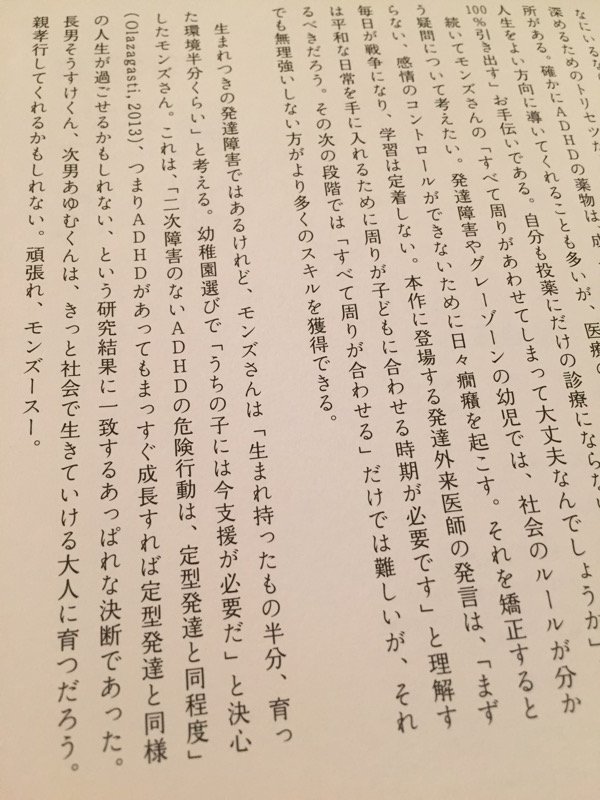 なにいるな
深めるためのトリセツだ
所がある。確かにADHDの薬物は、成
人生をよい方向に導いてくれることも多いが、医療の
100%引き出す」お手伝いである。自分も投薬にだけの診療にならない
続いてモンズさんの「すべて周りがあわせてしまって大丈夫なんでしょうか」
う疑問について考えたい。発達障害やグレーゾーンの幼児では、社会のルールが分か
らない、感情のコントロールができないために日々癇癪を起こす。それを矯正すると
毎日が戦争になり、学習は定着しない。本作に登場する発達外来医師の発言は、「まず
は平和な日常を手に入れるために周りが子どもに合わせる時期が必要です」と理解す
るべきだろう。その次の段階では「すべて周りが合わせる」だけでは難しいが、それ
でも無理強いしない方がより多くのスキルを獲得できる。
生まれつきの発達障害ではあるけれど、モンズさんは「生まれ持ったもの半分、育っ
た環境半分くらい」と考える。幼稚園選びで「うちの子には今支援が必要だ」と決心
したモンズさん。これは、「二次障害のないADHDの危険行動は、定型発達と同程度」
(Olazagasti, 2013)、つまりADHDがあってもまっすぐ成長すれば定型発達と同様
の人生が過ごせるかもしれない、という研究結果に一致するあっぱれな決断であった。
長男そうすけくん、次男あゆむくんは、きっと社会で生きていける大人に育つだろう。
親孝行してくれるかもしれない。頑張れ、モンズースー。